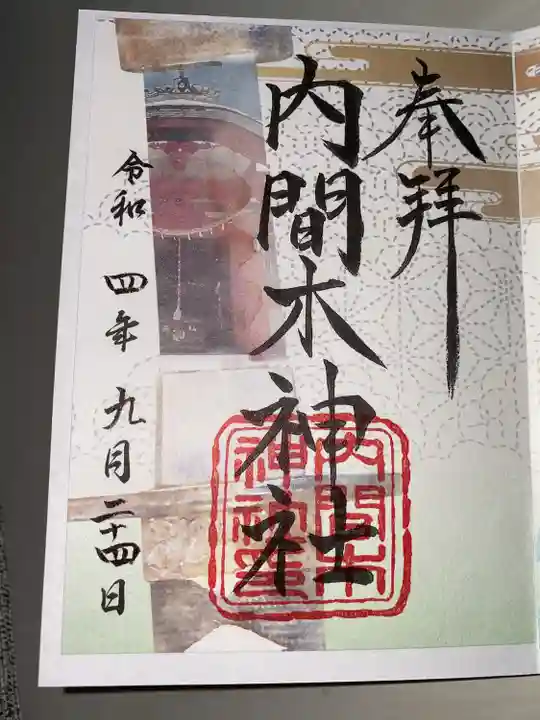 奉拝
内間木神社
内間木
神社
令和四年九月二十四日